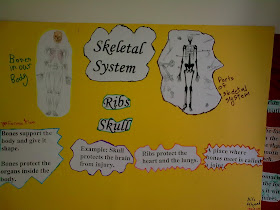 Bones
in our
Body
Skeletal
System
Parts
of
Skeletal
System
Ribs
Skull
Bones support the
body and give it
shape.
Bones protect the
organs inside the
body.
Example: Skull
protects the brain
from injury.
Ribs protect the
heart and the lungs.
A place where 2
bones meet is called
a joint.